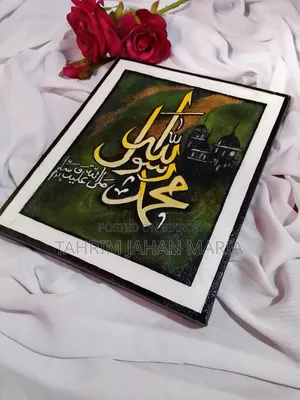 محمد رسول الله
صلى الله عليه وسلم
POSTED ON BIKROY
TAHRIM JAHAN MARIA